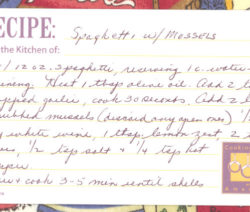 ECIPE: Spaghetti w/ Mussels
the Kitchen of:
12 oz. spaghetti, reserving 1 c. water
ning. Heat 1 tbsp olive oil. Add 2 t
pped garlic, cook 30 seconds. Add 2
ubbed mussels (discard any open ones)
y white wine, 1 tbsp lemon zest, 2
1/2 tsp salt & 1/4 tsp hot
& cook 3-5 min until shells
Cooking